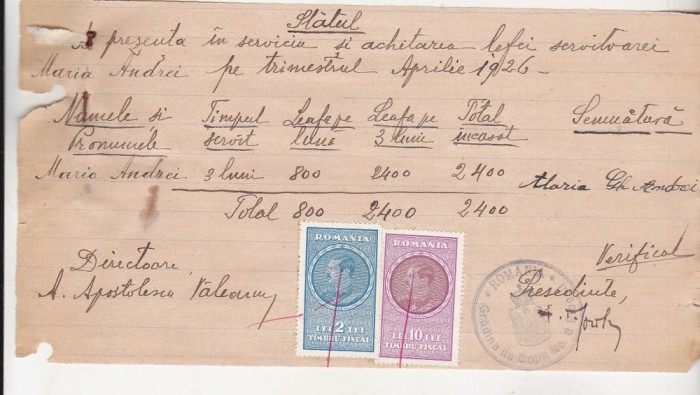 Statul
prezenta în serviciu și achitarea lefei servitoarei
Maria Andrei pe trimestrul Aprilie 1926
Namele și Timpul Leafa pe Leafa pe Total Semnătură
Pronumele servit lună 3 luni incasat
Maria Andrei 3 luni 800 2400 2400 Maria Gh Andrei
Total 800 2400 2400
Verificat
Directoare, Președinte,
A. Apostolescu
ROMANIA
LEI 2 LEI
TIMBRU FISCAL
ROMANIA
LEI 10 LEI
TIMBRU FISCAL
ROMANIA
Grădina de Copii No. 8